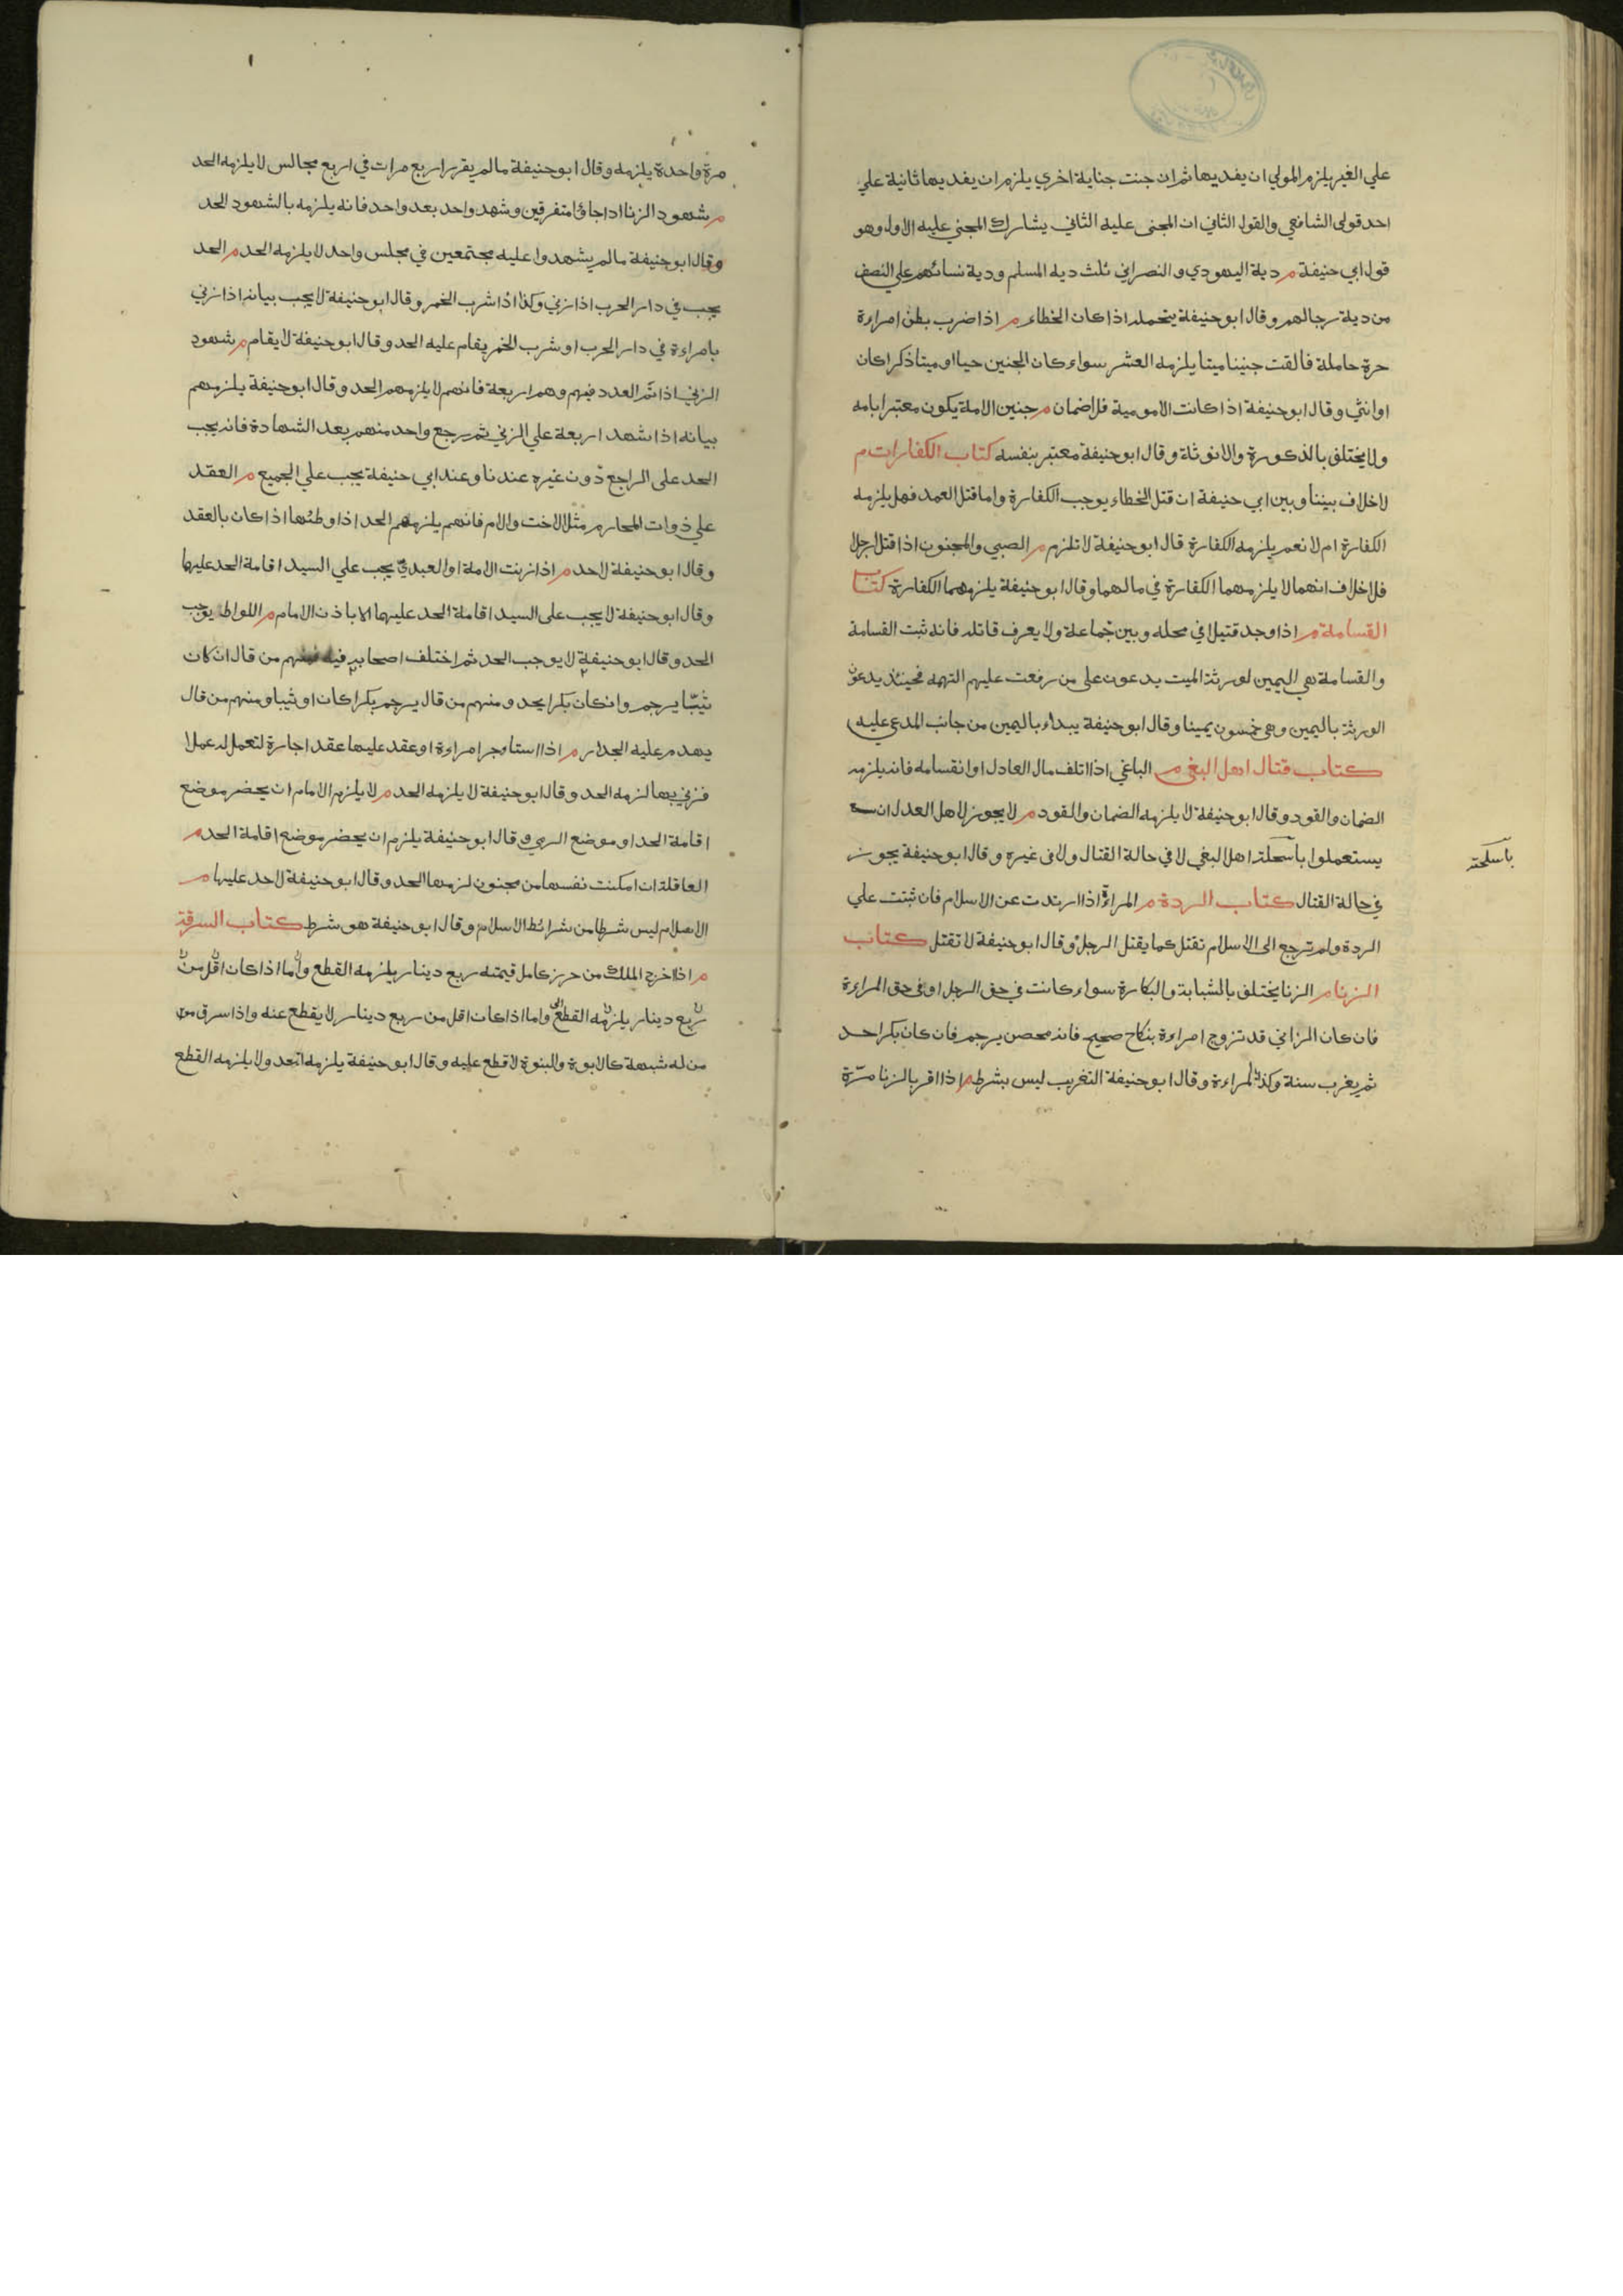 علي الغير يلزم المولي ان يفديها ثم ان جنت جناية اخري يلزم ان يفديها ثانية علي
احد قولى الشافعي والقول الثاني ان المجنى عليه الثاني يشارك المجني عليه الاول وهو
قول ابي حنيفة م دية اليهودي والنصراني ثلث دية المسلم ودية نسائهم علي النصف
من دية رجالهم وقال ابو حنيفة يتحمله اذا كان الخطاء م اذا ضرب بطن امراءة
حرة حاملة فالقت جنينا ميتا يلزمه العشر سواء كان الجنين حيا او ميتا ذكرا كان
او انثي وقال ابو حنيفة اذا كانت الامومية فلا ضمان م جنين الامة يكون معتبرا بامه
ولا يختلف بالذكورة والانوثة وقال ابو حنيفة معتبر بنفسه كتاب الكفارات م
لا خلاف بيننا وبين ابي حنيفة ان قتل الخطاء يوجب الكفارة واما قتل العمد فهل يلزمه
الكفارة ام لا نعم يلزمه الكفارة قال ابو حنيفة لا تلزم م الصبي والمجنون اذا قتل الرجل
فلا خلاف انهما لا يلزمهما الكفارة في مالهما وقال ابو حنيفة يلزمهما الكفارة كتاب
القسامة م اذا وجد قتيلا في محله وبين جماعة ولا يعرف قاتله فانه ثبت القسامة
والقسامة هي اليمين لورثة الميت يدعون على من رفعت عليهم التهمه فحينئذ يدعون
الورثة باليمين وهى خمسون يمينا وقال ابو حنيفة يبداء باليمين من جانب المدعي عليه
كتاب قتال اهل البغى م الباغي اذا اتلف مال العادل او انقسامه فانه يلزمه
الضمان والقود وقال ابو حنيفة لا يلزمه الضمان والقود م لا يجوز لاهل العدل ان
يستعملوا باسحلة اهل البغي لا في حالة القتال ولا فى غيره وقال ابو حنيفة يجوز
باسلحته
في حالة القتال كتاب الردة م المراة اذا ارتدت عن الاسلام فان ثبتت علي
الردة ولم ترجع الى الاسلام تقتل كما يقتل الرجل وقال ابو حنيفة لا تقتل كتاب
الزنا م الزنا يختلف بالشبابة والبكارة سواء كانت في حق الرجل او فى حق المراءة
فان كان الزاني قد تزوج امراءة بنكاح صحيح فانه محصن يرجم فان كان بكرا حد
ثم يغرب سنة وكذا المراءة وقال ابو حنيفة التغريب ليس بشرط م اذا اقر بالزنا مرّة
مرة واحدة يلزمه وقال ابو حنيفة ما لم يقرر اربع مرات في اربع مجالس لا يلزمه الحد
م شهود الزنا اذا جاؤا متفرقين وشهد واحد بعد واحد فانه يلزمه بالشهود الحد
وقال ابو حنيفة ما لم يشهدوا عليه مجتمعين في مجلس واحد لا يلزمه الحد م الحد
يجب في دار الحرب اذا زني وكذا اذا شرب الخمر وقال ابو حنيفة لا يجب بيانه اذا زني
بامراءة في دار الحرب او شرب الخمر يقام عليه الحد وقال ابو حنيفة لا يقام م شهود
الزني اذا تمّ العدد فيهم وهم اربعة فانهم لا يلزمهم الحد وقال ابو حنيفة يلزمهم
بيانه اذا شهد اربعة علي الزني ثم رجع واحد منهم بعد الشهادة فانه يجب
الحد على الراجع دون غيره عندنا وعند ابي حنيفة يجب علي الجميع م العقد
علي ذوات المحارم مثل الاخت والام فانهم يلزمهم الحد اذا وطئها اذا كان بالعقد
وقال ابو حنيفة لا حد م اذا زنت الامة او العبد يجب علي السيد اقامة الحد عليها
وقال ابو حنيفة لا يجب على السيد اقامة الحد عليهما الا باذن الامام م اللواط يوجب
الحد وقال ابو حنيفة لا يوجب الحد ثم اختلف اصحابه فيه فمنهم من قال ان كان
ثيبّا يرجم وان كان بكرا يحد ومنهم من قال يرجم بكرا كان او ثيبا ومنهم من قال
يهدم عليه الجدار م اذا استاءجر امراءة او عقد عليها عقد اجارة لتعمل له عملا
فزني بها لزمه الحد وقال ابو حنيفة لا يلزمه الحد م لا يلزم الامام ان يحضر موضع
اقامة الحد او موضع الرمي وقال ابو حنيفة يلزم ان يحضر موضع اقامة الحد م
العاقلة ان امكنت نفسها من مجنون لزمها الحد وقال ابو حنيفة لا حد عليها م
الاسلام ليس شرطا من شرائط الاسلام وقال ابو حنيفة هو شرط كتاب السرقة
م اذا اخرج الملك من حرز كامل قيمته ربع دينار يلزمه القطع واما اذا كان اقل من
ربع دينار يلزمه القطع واما اذا كان اقل من ربع دينار لا يقطع عنه واذا سرق من
من له شبهة كالابوة والبنوة لا قطع عليه وقال ابو حنيفة يلزمه الحد ولا يلزمه القطع